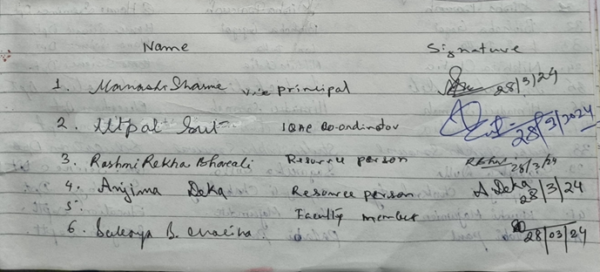 Name Signature
1. Manashi Sharma Vice principal 28/3/24
2. Utpal IQAC Co-ordinator 28/3/2024
3. Rashmi Rekha Bharali Resource person 28/3/24
4. Anjima Deka Resource person A. Deka 28/3/24
5. Faculty member
6. B. 28/03/24